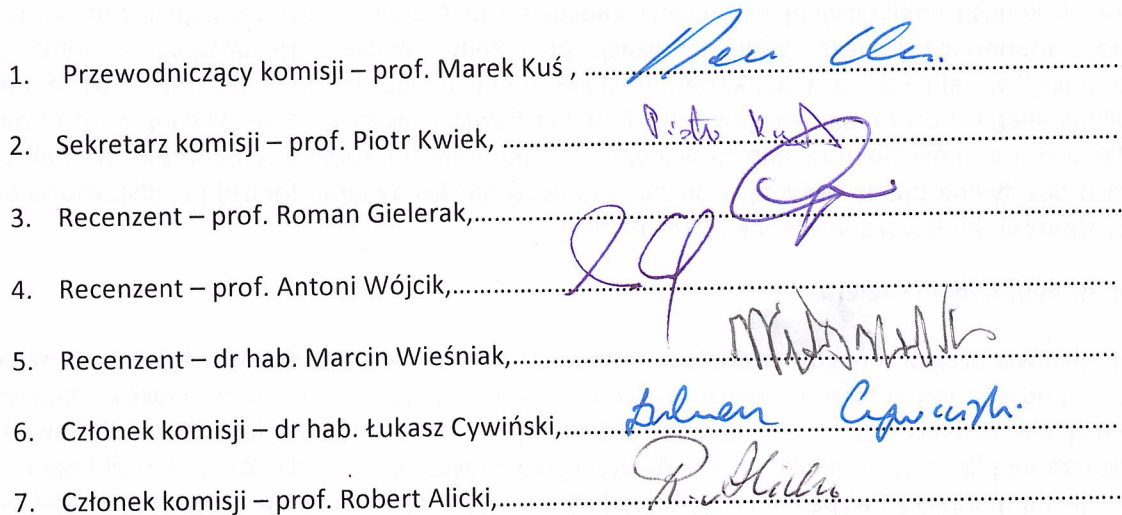 1. Przewodniczący komisji – prof. Marek Kuś , ...........................................................
2. Sekretarz komisji – prof. Piotr Kwiek, ........................................................... Piotr Kwiek
3. Recenzent – prof. Roman Gielerak,...........................................................
4. Recenzent – prof. Antoni Wójcik,...........................................................
5. Recenzent – dr hab. Marcin Wieśniak,...........................................................
6. Członek komisji – dr hab. Łukasz Cywiński,........................................................... Łukasz Cywiński
7. Członek komisji – prof. Robert Alicki,........................................................... R. Alicki